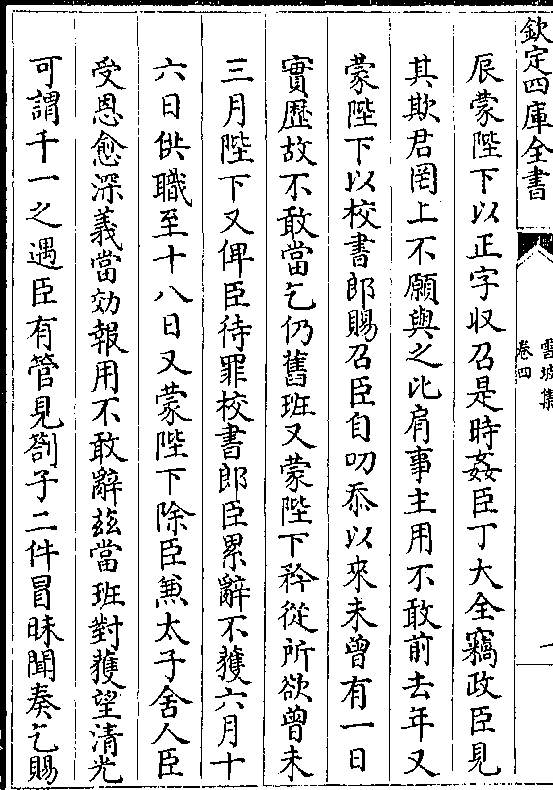 欽定四庫全書
雪坡集
卷四
一
辰蒙陛下以正字収召是時姦臣丁大全竊政臣見
其欺君罔上不願與之比肩事主用不敢前去年又
蒙陛下以校書郎賜召臣自叨忝以來未曾有一日
實歴故不敢當乞仍舊班又蒙陛下矜從所欲曾未
三月陛下又俾臣待罪校書郎臣累辭不獲六月十
六日供職至十八日又蒙陛下除臣兼太子舍人臣
受恩愈深義當効報用不敢辭兹當班對獲望清光
可謂千一之遇臣有管見劄子二件冒昧聞奏乞賜